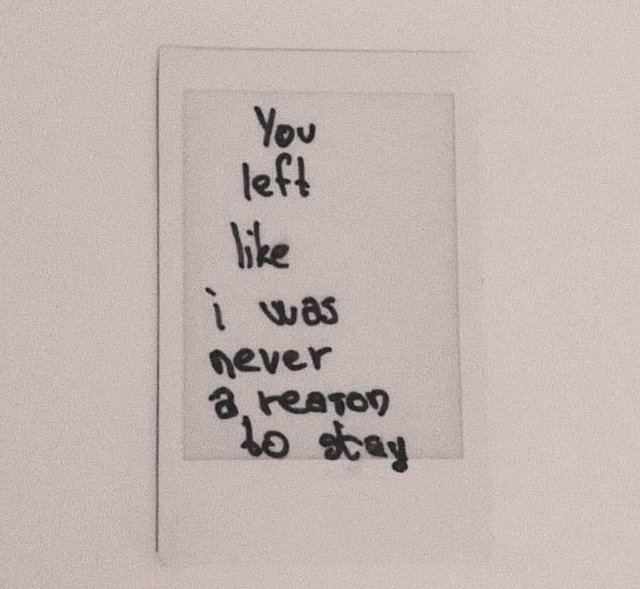 You
left
like
i was
never
a reason
to stay